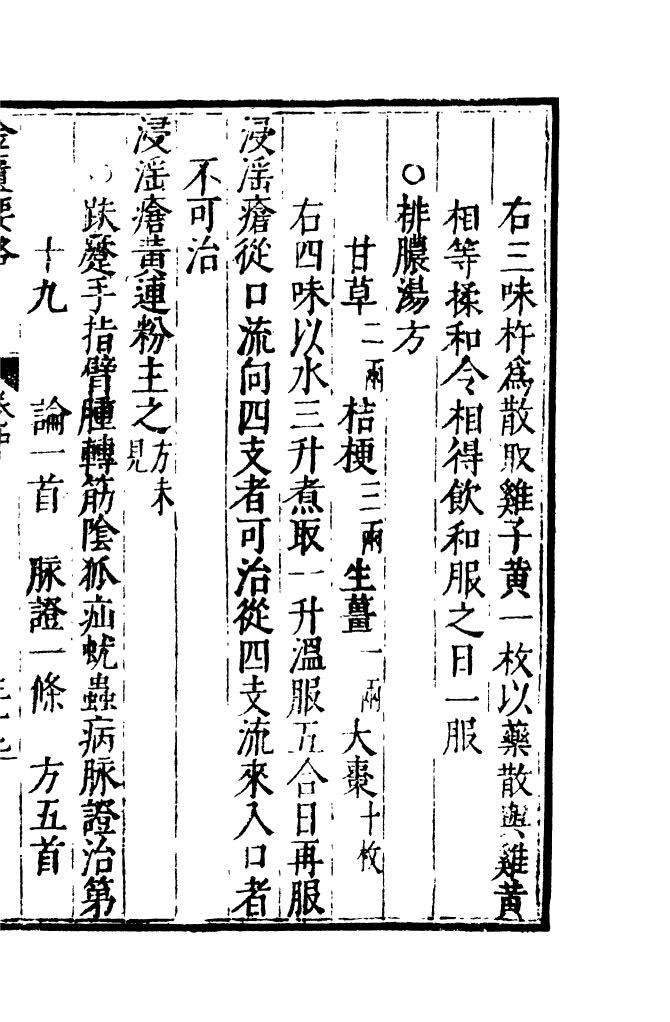 右三味杵為散取雞子黃一枚以藥散與雞黃
相等揉和令相得飲和服之日一服
○排膿湯方
甘草二兩 桔梗三兩 生薑一兩 大棗十枚
右四味以水三升煮取一升溫服五合日再服
浸滛瘡從口流向四支者可治從四支流來入口者
不可治
浸滛瘡黃連粉主之方未見
○趺蹷手指臂腫轉筋陰狐疝蚘蟲病脉證治第
十九 論一首 脉證一條 方五首
金匱要略